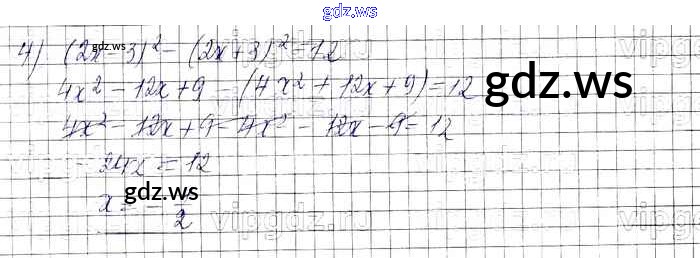 gdz.ws
4) (2x-3)² - (2x+3)² = 12
gdz.ws
4x² - 12x + 9 - (4x² + 12x + 9) = 12
gdz.ws
4x² - 12x + 9 - 4x² - 12x - 9 = 12
24x = 12
gdz.ws
x = - 1/2
vipgdz.ru